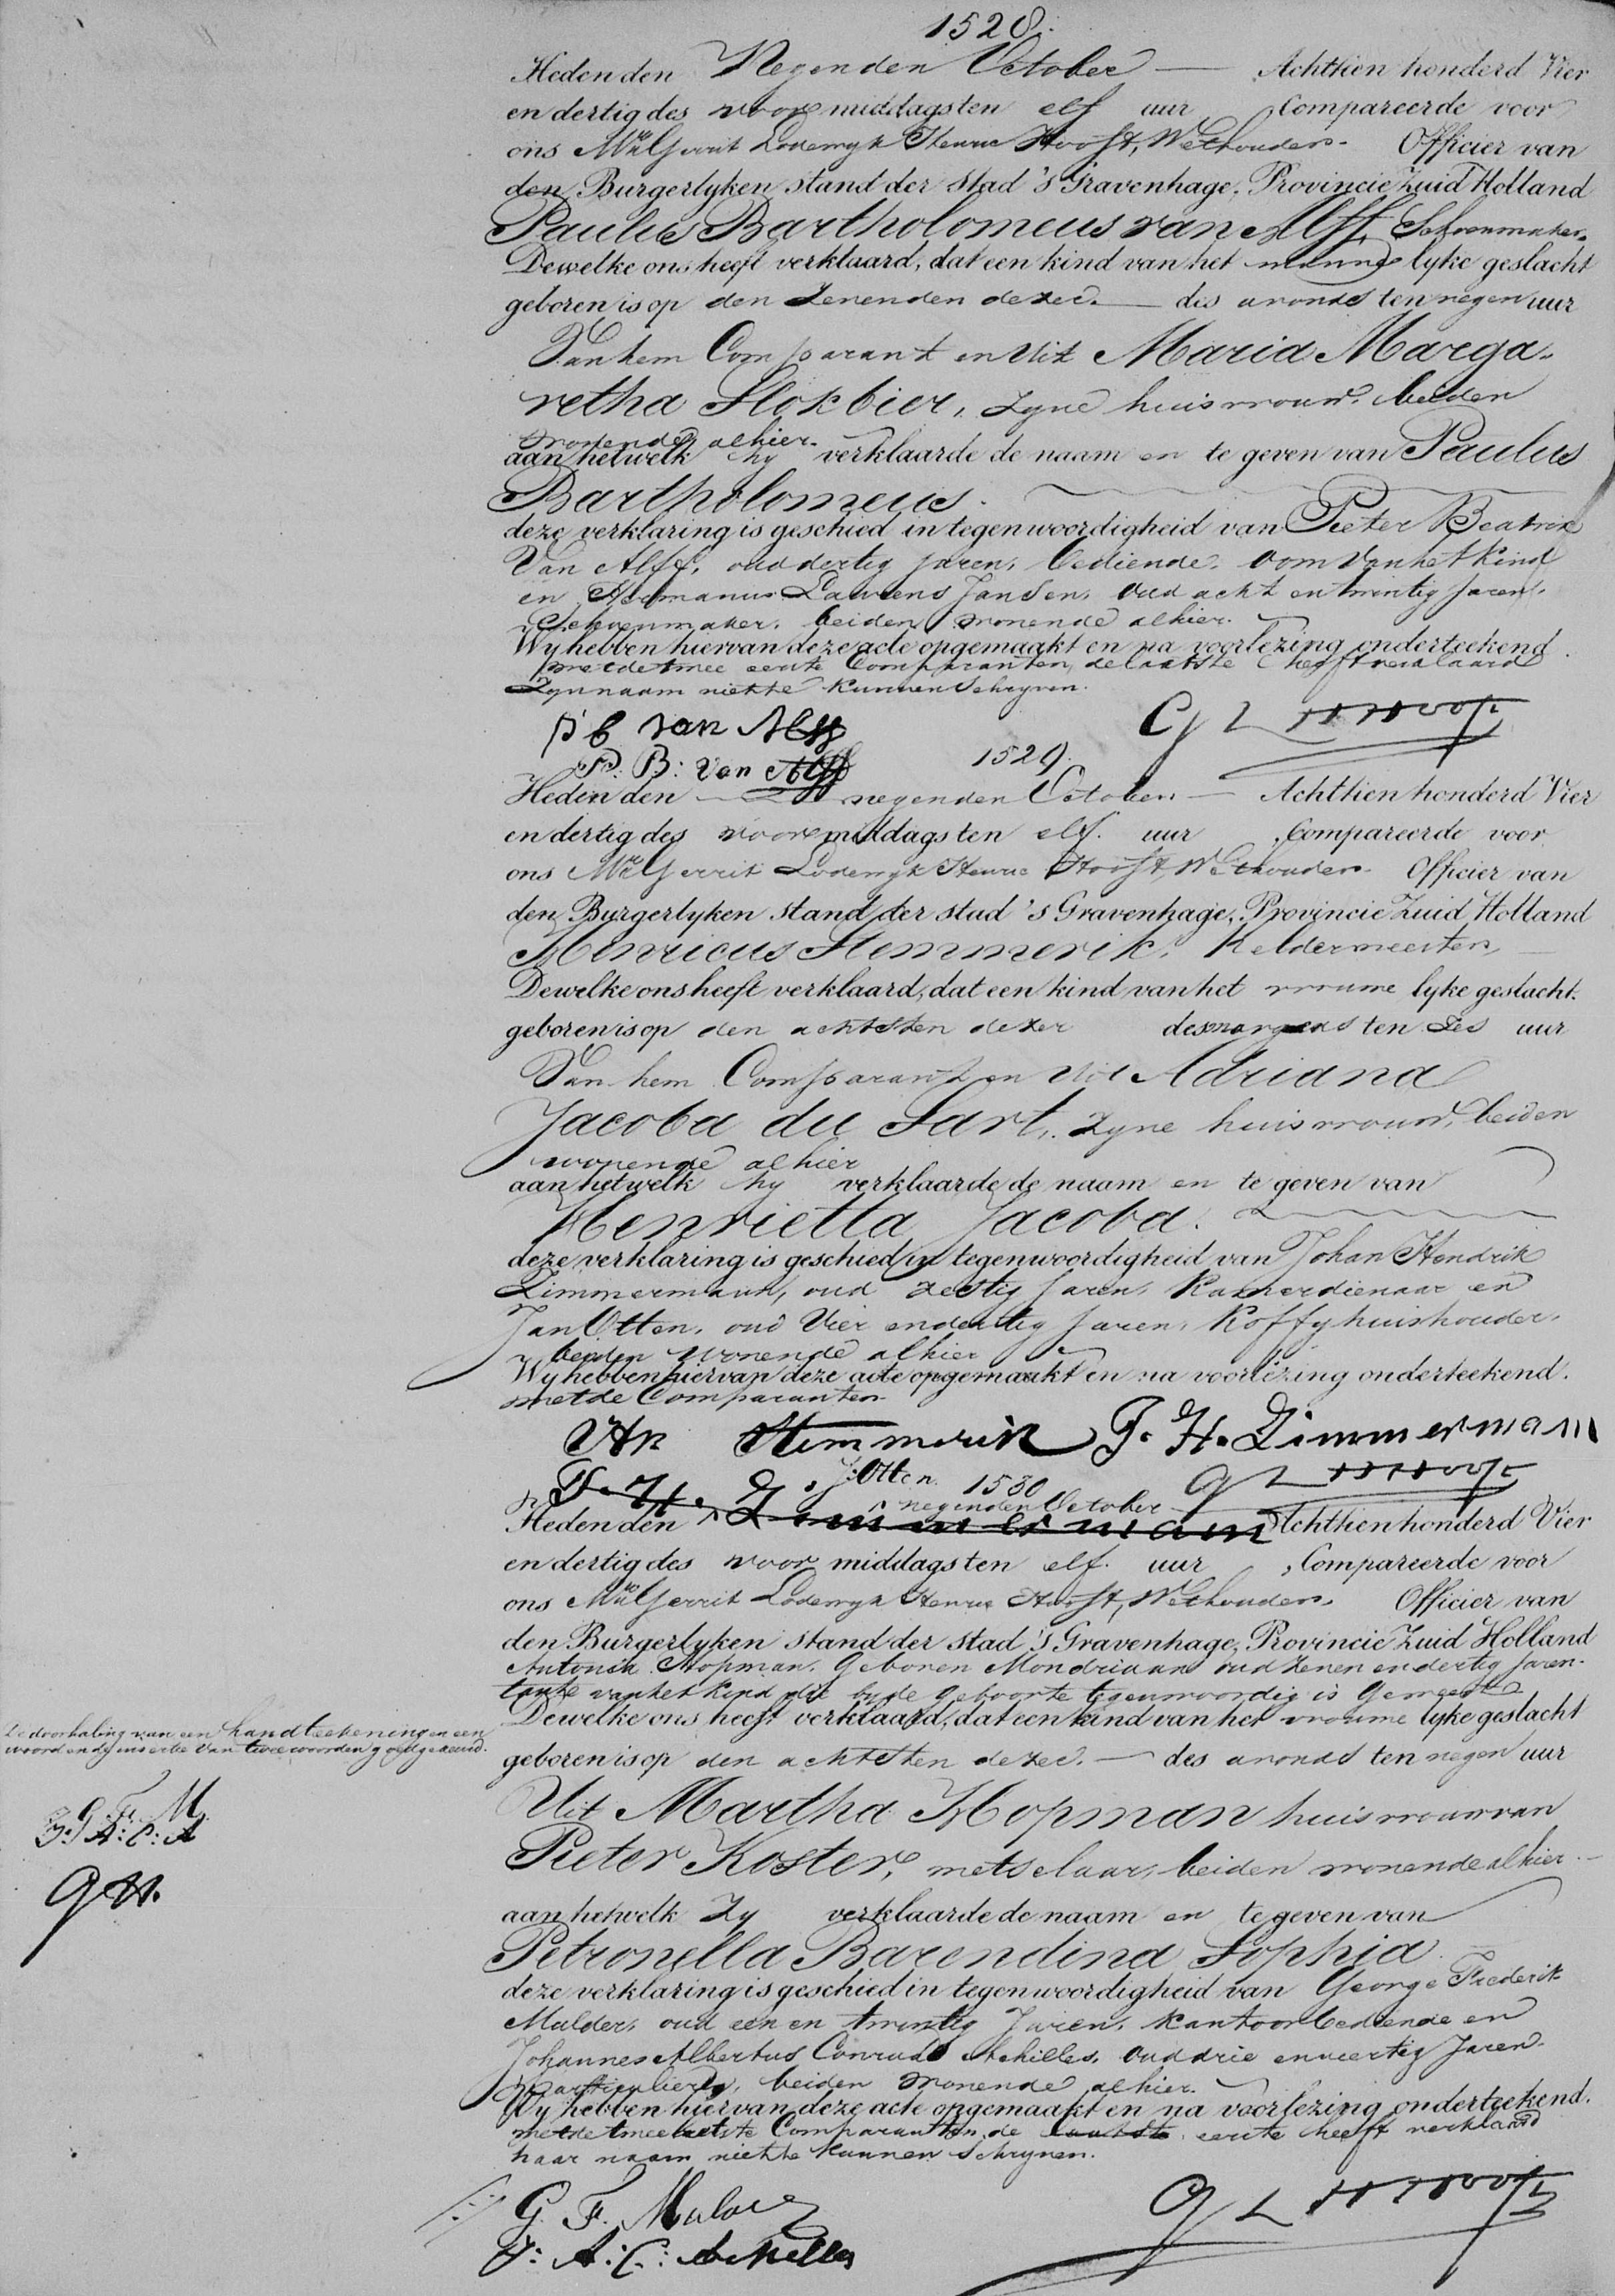 1528.
Heden den Negenden October — Achttien honderd Vier
en dertig des voor middags ten elf uur Compareerde voor
ons Mr Gerrit Lodewyk Henric Hooft, Wethouder. Officier van
den Burgerlyken stand der stad 's Gravenhage, Provincie Zuid Holland
Paulus Bartholomeus van Alff, Schoenmaker,
Dewelke ons heeft verklaard, dat een kind van het manne lyke geslacht
geboren is op den Zevenden dezer. — des avonds ten negen uur
Van hem Comparant en Uit Maria Marga-
retha Slokbier, zyne huisvrouw, beiden
wonende alhier.
aan hetwelk hy verklaarde de naam en te geven van Paulus
Bartholomeus.
deze verklaring is geschied in tegenwoordigheid van Pieter Beatrix
Van Alff, oud dertig jaren, bediende, oom van het kind
en Hermanus Laurens Jansen, oud acht en twintig jaren,
Schoenmaker, beiden wonende alhier.
Wy hebben hiervan deze acte opgemaakt en na voorlezing onderteekend.
met de twee eerste Comparanten, de laatste heeft verklaard
Zyn naam niet te kunnen Schryven.
P B van Alff
G L H Hooft
P: B: Van Alff
1529.
Heden den — negenden October — Achttien honderd Vier
en dertig des voor middags ten elf. uur Compareerde voor
ons Mr Gerrit Lodewyk Henric Hooft, Wethouder Officier van
den Burgerlyken stand der stad 's Gravenhage, Provincie Zuid Holland
Henricus Hemmerik, Keldermeester,
Dewelke ons heeft verklaard, dat een kind van het vrouwe lyke geslacht.
geboren is op den achtsten dezer des morgens ten Zes uur
Van hem Comparant en Uit Adriana
Jacoba du Sart, zyne huisvrouw, beiden
wonende alhier
aan hetwelk hy verklaarde de naam en te geven van
Henrietta Jacoba.
deze verklaring is geschied in tegenwoordigheid van Johan Hendrik
Zimmermann, oud zestig jaren, Kamerdienaar en
Jan Otten, oud Vier en dertig jaren, Koffyhuishouder,
beiden wonende alhier
Wy hebben hiervan deze acte opgemaakt en na voorlezing onderteekend.
met de Comparanten
Hemmerik J. H. Zimmermann
J: Otten. 1530 G L H Hooft
J. H. Zimmermann
negenden October
Heden den Achttien honderd Vier
en dertig des voor middags ten elf. uur Compareerde voor
ons Mr Gerrit Lodewyk Henric Hooft, Wethouder. Officier van
den Burgerlyken stand der stad 's Gravenhage, Provincie Zuid Holland
Antonia Hopman, Geboren Mondriaan oud zeven en dertig jaren.
tante van het kind die by de geboorte tegenwoordig is Geweest
Dewelke ons heeft verklaard, dat een kind van het vrouwe lyke geslacht
geboren is op den achtsten dezer. — des avonds ten negen uur
Uit Martha Hopman huisvrouw van
Pieter Koster, metselaar, beiden wonende alhier. —
aan hetwelk Zy verklaarde de naam en te geven van
Petronella Barendina Sophia
deze verklaring is geschied in tegenwoordigheid van George Frederik
Mulder, oud een en twintig Jaren, Kantoorbediende en
Johannes Albertus Conrad Achilles, oud drie en veertig Jaren.
particulier, beiden wonende alhier.
Wy hebben hiervan deze acte opgemaakt en na voorlezing onderteekend.
met de twee laatste Comparanten, de laatste eerste heeft verklaard
haar naam niet te kunnen Schryven.
G. F. Mulder
G L H Hooft
J: A: C: Achilles
De doorhaling van een handteekening en een
woord en de insertie van twee woorden goedgekeurd.
G. F. M.
J: A: C: A
G H.